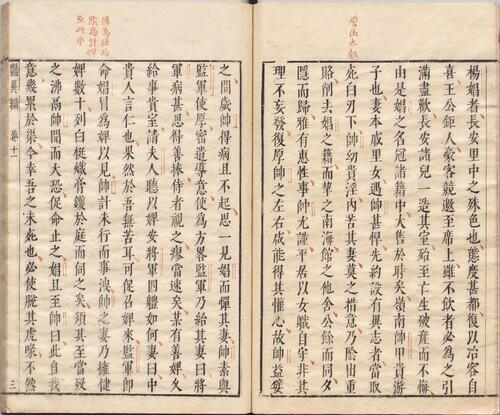 楊娼者長安里中之殊色也態度甚都復以冶容自
喜王公鉅人豪客競邀至席上雖不飲者必為之引
滿盡歡長安諸兒一造其室殆至亡生破產而不悔
由是娼之名冠諸籍中大售於時矣嶺南帥甲貴游
子也妻本戚里女遇帥甚悍先約設有異志者當取
死白刃下帥幼貴淫內苦其妻莫之措意乃陰出重
賂削去娼之籍而挈之南海館之他舍公餘而同夕
隱而歸雅有惠性事帥尤謹平居以女職自守非其
理不妄發復厚帥之左右咸能得其懽心故帥益嬖
之間歲帥得病且不起思一見娼而憚其妻帥素與
監軍使厚密遣導意使為方畧監軍乃紿其妻曰將
軍病甚思得善捧侍者視之瘳當速矣某有善婢久
給事貴室請夫人聽以婢安將軍四體如何妻曰中
貴人言仁也果然於吾無苦耳可促召婢來監軍即
命娼冒為婢以見帥計未行而事洩帥之妻乃擁健
婢數十列白梃熾膏鑊於庭而伺之矣須其至當投
之沸鬲帥聞而大恐促命止之娼且至帥曰此自我
意幾累於渠今幸吾之未死也必使脫其虎喙不然
豔異編 卷十一 三